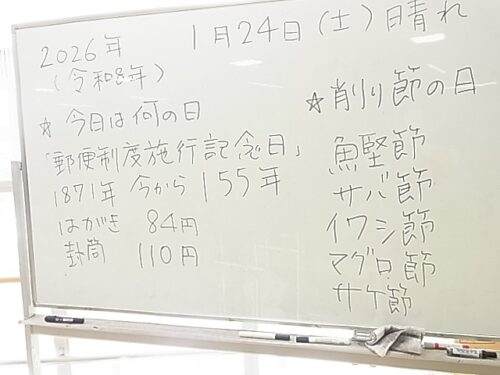 2026年 1月24日(土)晴れ
(令和8年)
☆ 今日は何の日
「郵便制度施行記念日」
1871年 今から 155年
はがき 84円
封筒 110円
☆ 削り節の日
魚堅節
サバ節
イワシ節
マグロ節
サケ節